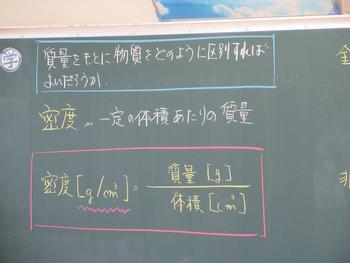 学
質量をもとに物質をどのように区別すれば
よいだろうか.
密度 … 一定の体積あたりの質量
密度[g/cm³] = 質量[g] / 体積[cm³]